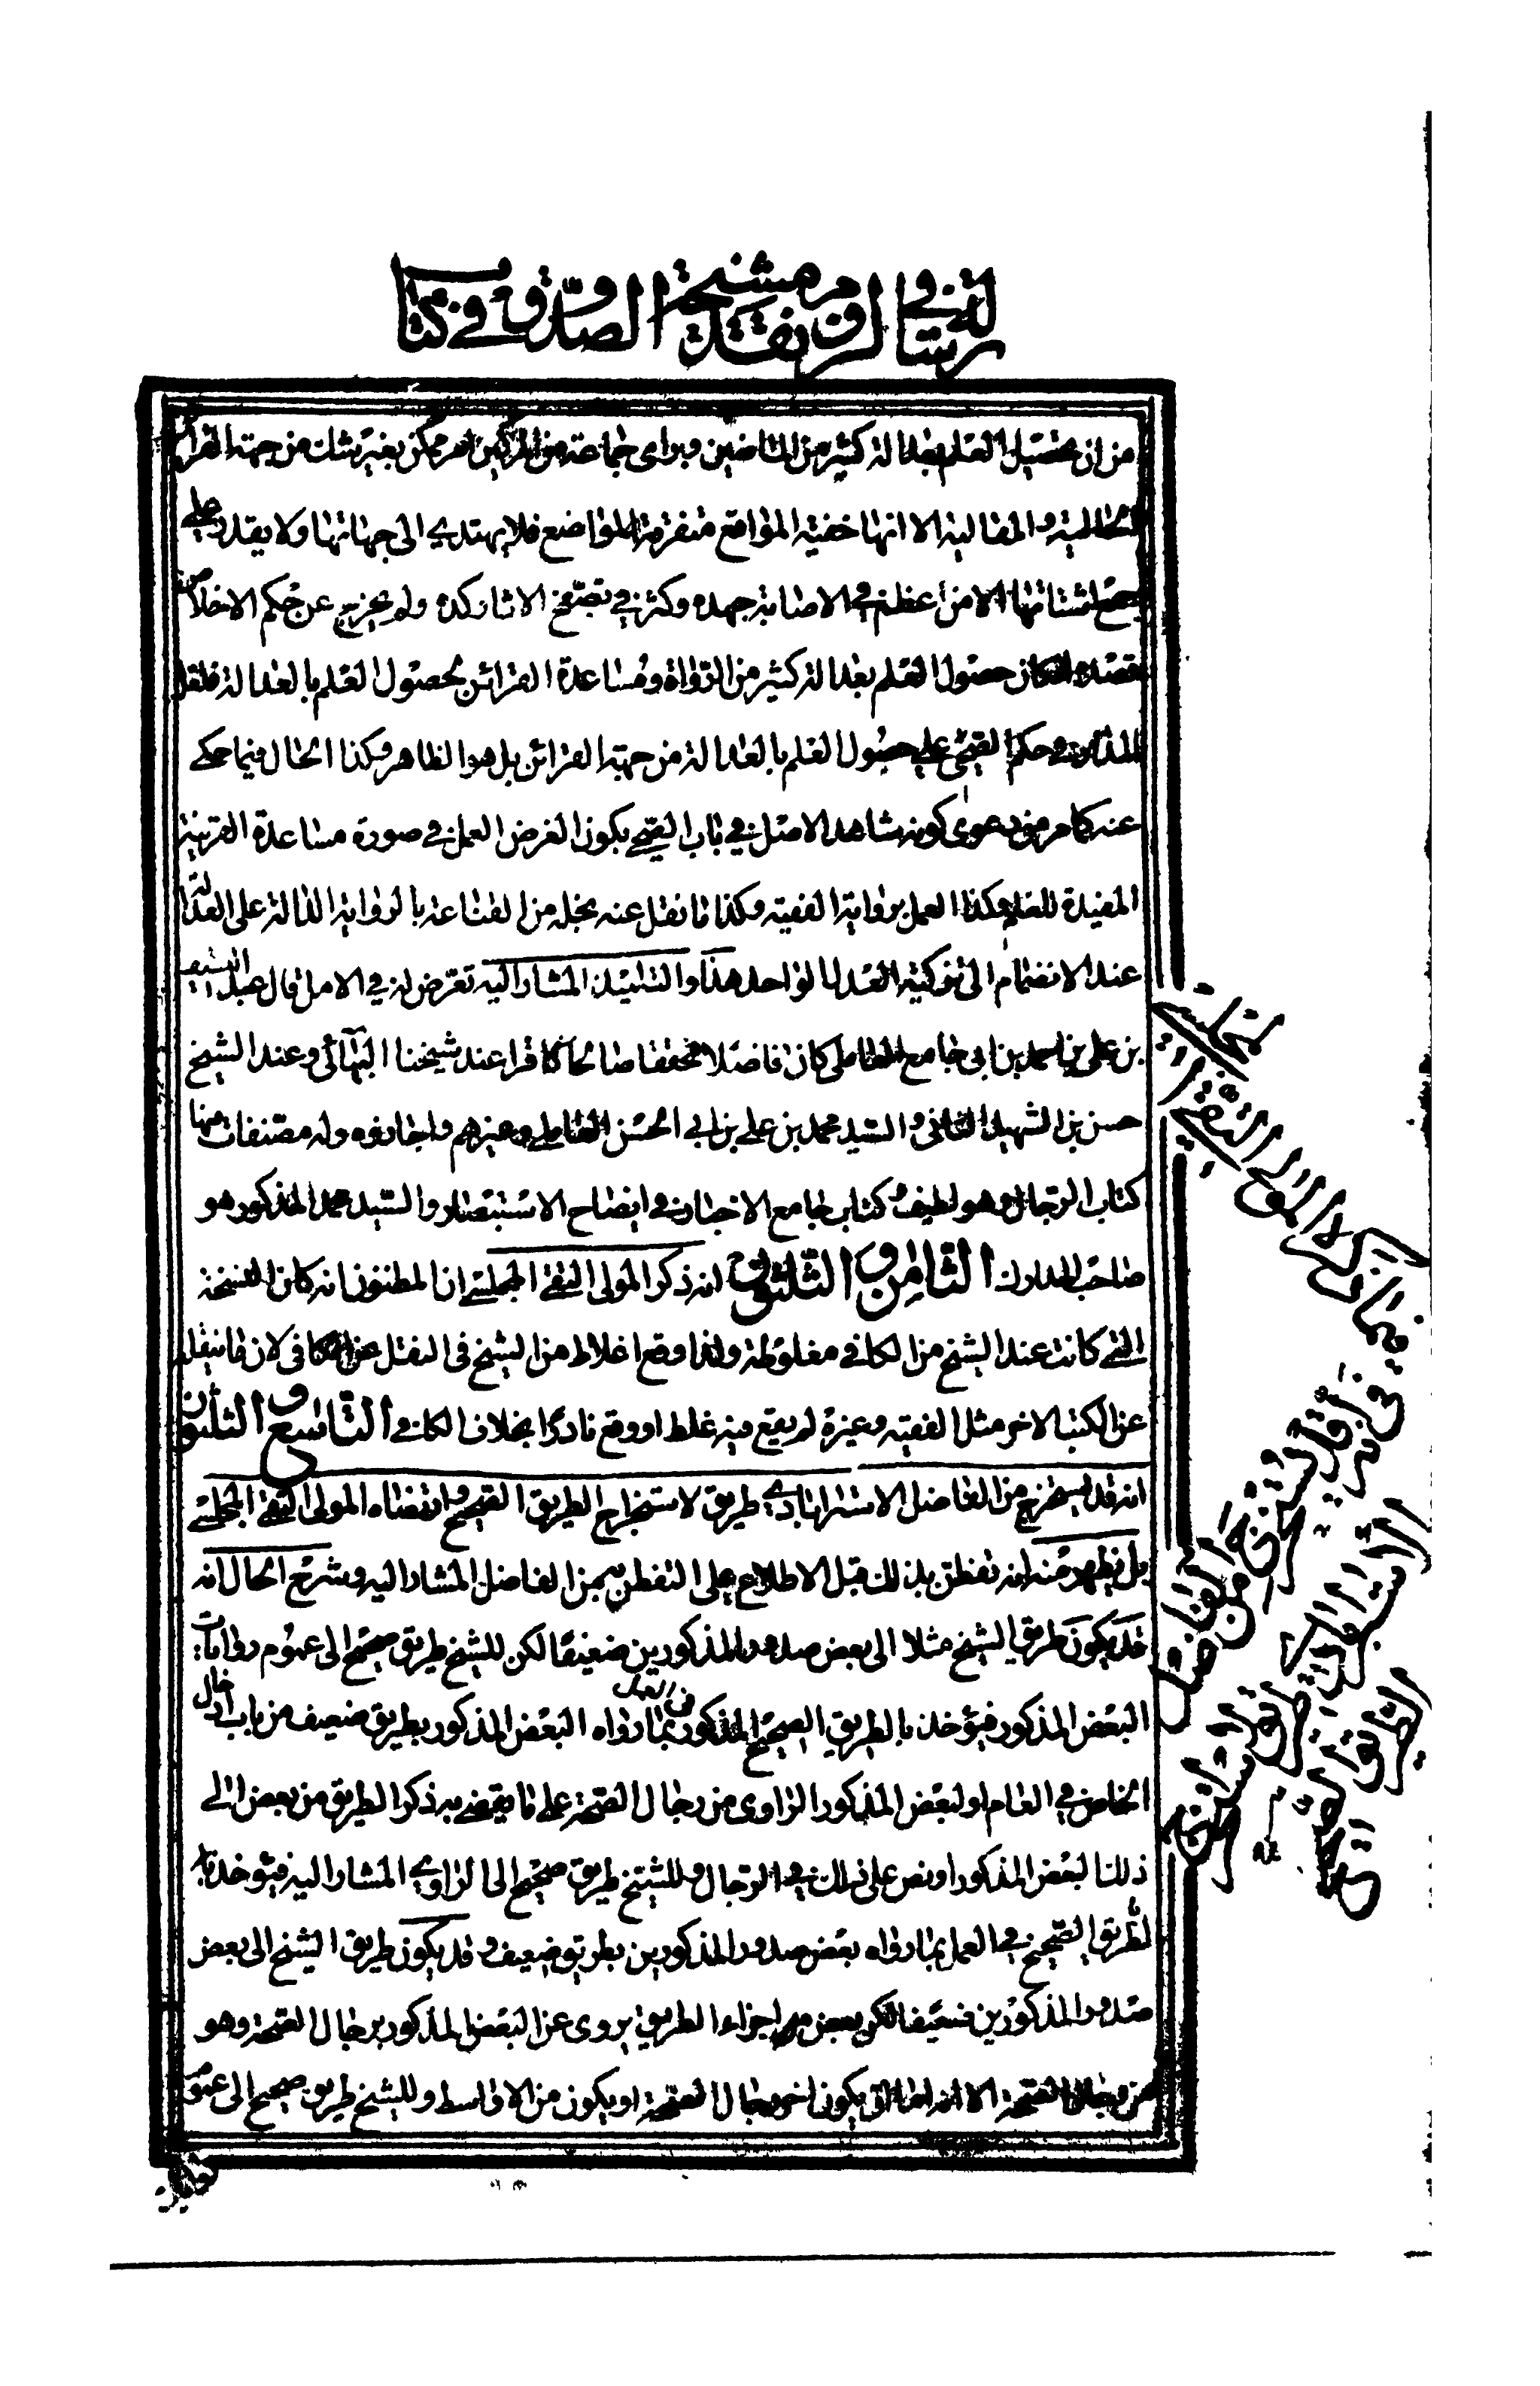 رسالة في نقد مشيخة الصدوق في كتاب
من ان تحصيل العلم بعدالة كثير من الماضين وبراى جماعة من المزكين امر ممكن بغير شك من جهة القراين
الحالية والمقالية الا انها خفية المواقع متفرقة المواضع فلا يهتدي الى جهاتها ولا يقدر على
جمع اشتاتها الا من عظم في الاصابة جهده وكثر في تصفح الاثار وكده ولم يخرج عن حكم الاخلاص
قصده امكان حصول العلم بعدالة كثير من الرواة ومساعدة القرائن بحصول العلم بالعدالة فلعل
المدار في حكم الصحى على حصول العلم بالعدالة من جهة القرائن بل هو الظاهر وكذا الحال فيما حكى
عنه كما مر من دعوى كونه شاهد الاصل في باب الصحى بكون الغرض العمل في صورة مساعدة القرينة
المفيدة للعلم وكذا العمل برواية الفقيه وكذا ما نقل عنه نجله من القناعة بالرواية الدالة على العدالة
عند الانضمام الى تزكية العدل الواحد هذا والتلميذ المشار اليه تعرض له في الامل قال عبد اللطيف
بن علي بن احمد بن ابي جامع العاملي كان فاضلا محققا صالحا كا قرا عند شيخنا البهائي وعند الشيخ
حسن بن الشهيد الثاني والسيد محمد بن علي بن ابي الحسن العاملي وغيرهم واجازوه وله مصنفات منها
كتاب الرجال وهو لطيف وكتاب جامع الاخبار في ايضاح الاستبصار والسيد محمد المذكور هو
صاحب المدارك الثامن والثلثون انه ذكر المولى التقي المجلسي ان المظنون انه كان النسخة
التي كانت عند الشيخ من الكافي مغلوطة ولذا وقع اغلاط من الشيخ في النقل عن الكافي لان ما ينقله
عن الكتب الاخر مثل الفقيه وغيره لم يقع فيه غلط او وقع نادرا بخلاف الكافي التاسع والثلثون
انه قد استخرج من الفاضل الاسترابادي طريق لاستخراج الطريق الصحيح وارتضاه المولى التقي المجلسي
بل يظهر منه انه تفطن بذلك قبل الاطلاع على التفطن به من الفاضل المشار اليه وشرح الحال انه
قد يكون طريق الشيخ مثلا الى بعض صدور المذكورين ضعيفا لكن للشيخ طريق صحيح الى عموم روايات
البعض المذكور فيؤخذ بالطريق الصحيح المذكور في العمل بما رواه البعض المذكور بطريق ضعيف من باب ادخال
الخاص في العام او لبعض المذكور الراوي من رجال الصحة على ما يقتضيه ذكر الطريق من بعض الى
ذلك البعض المذكور او نص على ذلك في الرجال وللشيخ طريق صحيح الى الراوي المشار اليه فيؤخذ با
لطريق الصحيح في العمل بما رواه بعض صدور المذكورين بطريق ضعيف وقد يكون طريق الشيخ الى بعض
صدور المذكورين ضعيفا لكن بعض من اجزاء الطريق يروى عن البعض المذكور برجال الصحة وهو
من رجال الصحة الا انه اما ان يكون اخر رجال الصحة او يكون من الاواسط وللشيخ طريق صحيح الى عموم